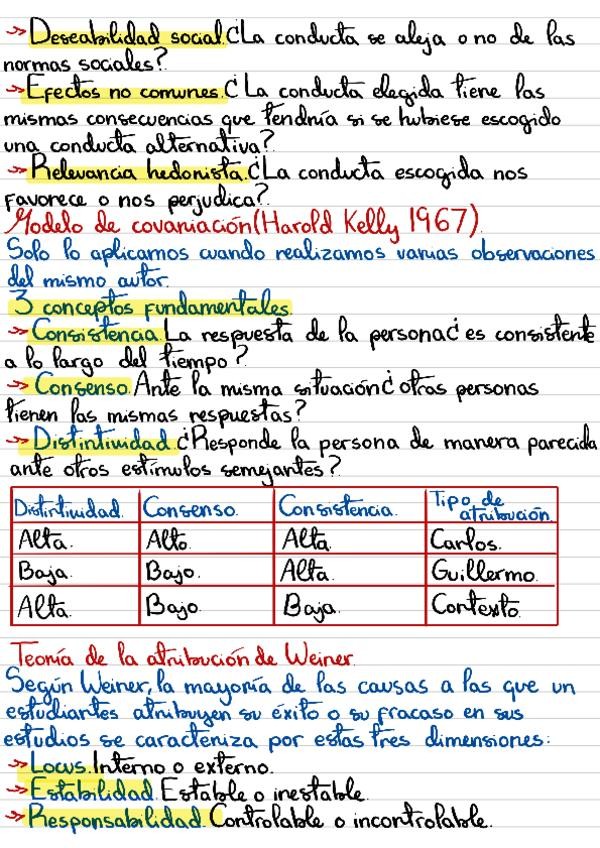 ->> Deseabilidad social. ¿La conducta se aleja o no de las
normas sociales?
->> Efectos no comunes. ¿La conducta elegida tiene las
mismas consecuencias que tendría si se hubiese escogido
una conducta alternativa?
->> Relevancia hedonista. ¿La conducta escogida nos
favorece o nos perjudica?
Modelo de covariación (Harold Kelly 1967).
Solo lo aplicamos cuando realizamos varias observaciones
del mismo autor.
3 conceptos fundamentales.
->> Consistencia. La respuesta de la persona ¿es consistente
a lo largo del tiempo?
->> Consenso. Ante la misma situación ¿otras personas
tienen las mismas respuestas?
->> Distintividad ¿Responde la persona de manera parecida
ante otros estímulos semejantes?
Distintividad. Consenso. Consistencia. Tipo de atribución.
Alta. Alto. Alta. Carlos.
Baja. Bajo. Alta. Guillermo.
Alta. Bajo. Baja. Contexto.
Teoría de la atribución de Weiner.
Según Weiner, la mayoría de las causas a las que un
estudiantes atribuyen su éxito o su fracaso en sus
estudios se caracteriza por estas tres dimensiones:
->> Locus. Interno o externo.
->> Estabilidad. Estable o inestable.
->> Responsabilidad. Controlable o incontrolable.